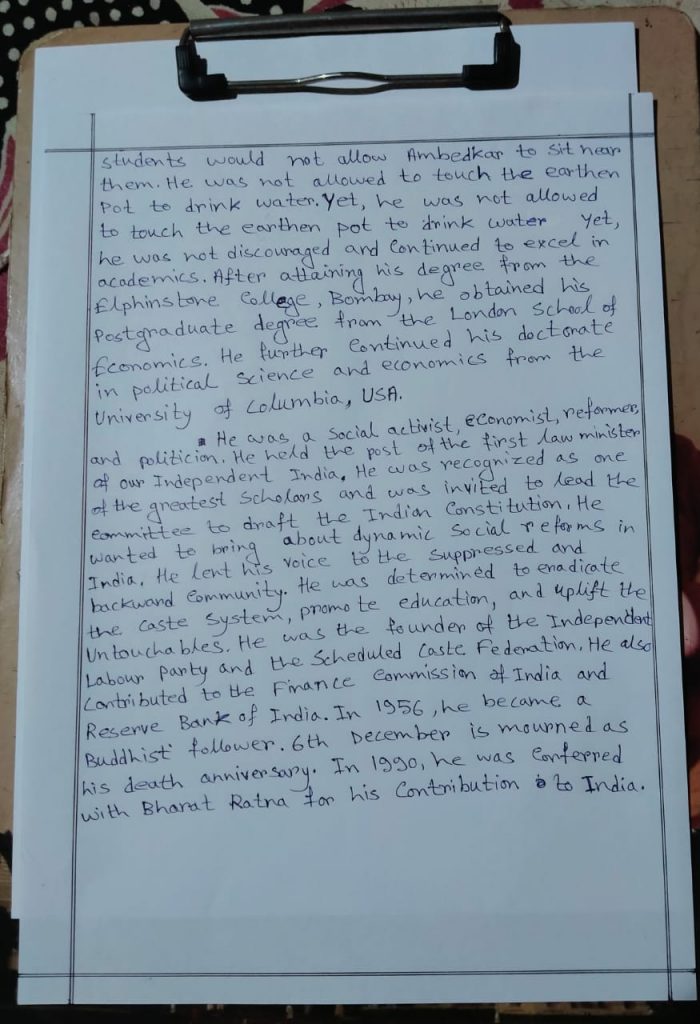 students would not allow Ambedkar to sit near
them. He was not allowed to touch the earthen
Pot to drink water. Yet, he was not allowed
to touch the earthen pot to drink water Yet,
he was not discouraged and Continued to excel in
academics. After attaining his degree from the
Elphinstone College, Bombay, he obtained his
Postgraduate degree from the London School of
Economics. He further Continued his doctorate
in political Science and economics from the
University of Columbia, USA.
He was a Social activist, economist, reformer,
and politicion. He held the post of the first law minister
of our Independent India. He was recognized as one
of the greatest Scholars and was invited to lead the
Committee to draft the Indian Constitution. He
wanted to bring about dynamic Social reforms in
India. He lent his voice to the Suppressed and
backward Community. He was determined to eradicate
the caste System, promote education, and uplift the
Untouchables. He was the founder of the Independent
Labour Party and the Scheduled Caste Federation. He also
Contributed to the Finance Commission of India and
Reserve Bank of India. In 1956, he became a
Buddhist follower. 6th December is mourned as
his death anniversary. In 1990, he was Conferred
with Bharat Ratna for his Contribution to India.